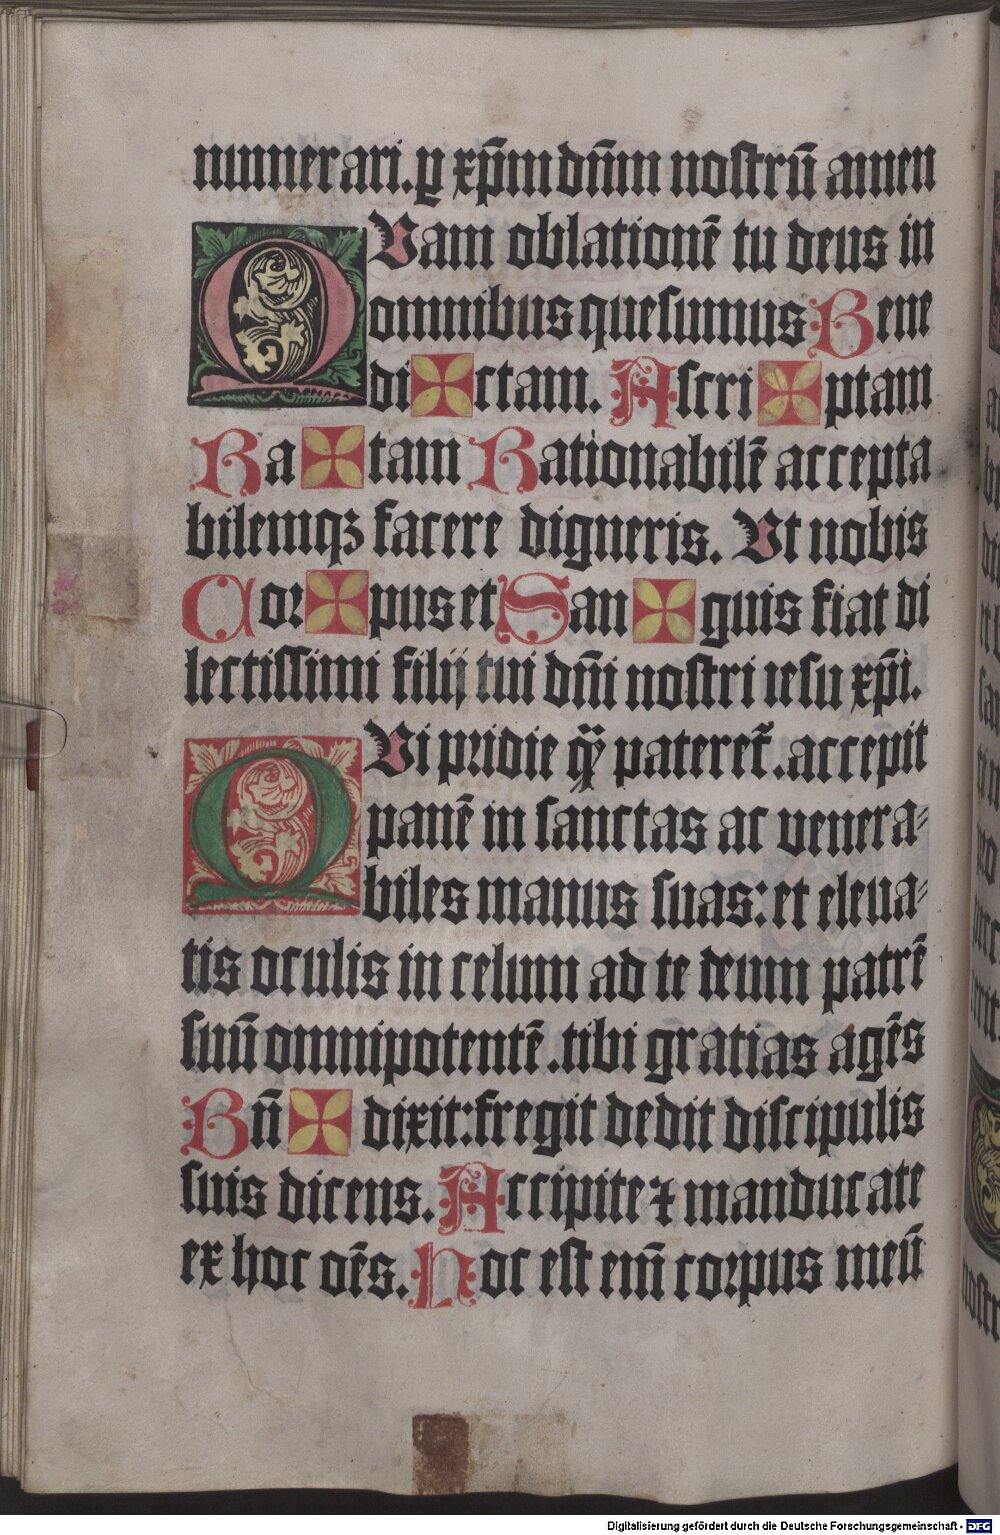 numerari. ꝑ xp̄m dn̄m nostrū amen
QVam oblationē tu deus in
omnibus quesumus Bene
di ✠ ctam. Ascri ✠ ptam
Ra ✠ tam Rationabilē accepta
bilemqꝫ facere digneris. Vt nobis
Cor ✠ pus et San ✠ guis fiat di
lectissimi filij tui dn̄i nostri iesu xp̄i.
QVi pridie qͣꝫ pateret᷑. accepit
panē in sanctas ac venera⸗
biles manus suas: et eleua⸗
tis oculis in celum ad te deum patrē
suū omnipotentē. tibi gratias agēs
Bn̄ ✠ dixit: fregit dedit discipulis
suis dicens. Accipite ⁊ manducate
ex hoc oēs. Hoc est em̄ corpus meū
Digitalisierung gefördert durch die Deutsche Forschungsgemeinschaft - DFG